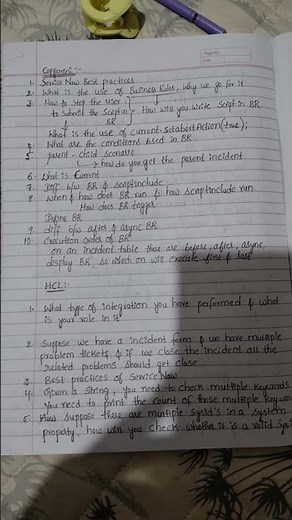 Capgemini :-
1. Service Now Best practices
2. What is the use of Business Rules, Why we go for it
3. How to stop the user
to submit the Script in BR - How will you write Script in BR
What is the use of current.SetabortAction(true);
4. What are the conditions used in BR
5. parent - child scenario
↳ how do you get the parent incident
6. What is Current
7. Diff b/w BR & script include
8. When & how does BR run & how scriptinclude run
How does BR trigger.
Define BR
9. diff b/w after & async BR
10. Execution order of BR
on an incident table there are before, after, async,
display BR, so which on will execute first & last
HCL:-
1. What type of integration you have performed & what
is your role in it
2. Suppose we have a incident form & we have multiple
problem tickets & if we close the incident all the
related problems should get close
3. Best practices of Service Now
4. Given a string, you need to check multiple keywords
You need to print the count of those multiple
5. Now suppose there are multiple sysid's in a system
property, how will you check whether it is a valid